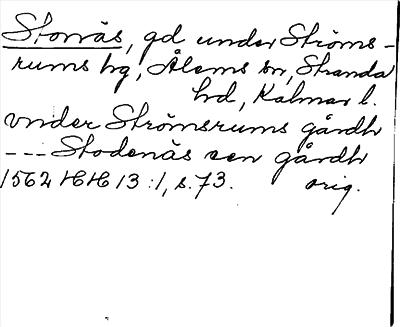 Stornäs, gd under Ströms-
rums hg, Ålems sn, Stranda
hd, Kalmar l.
vnder Strömsrums gårdh
--- Stodenäs een gårdh
1562 HH 13:1, s. 73. orig.